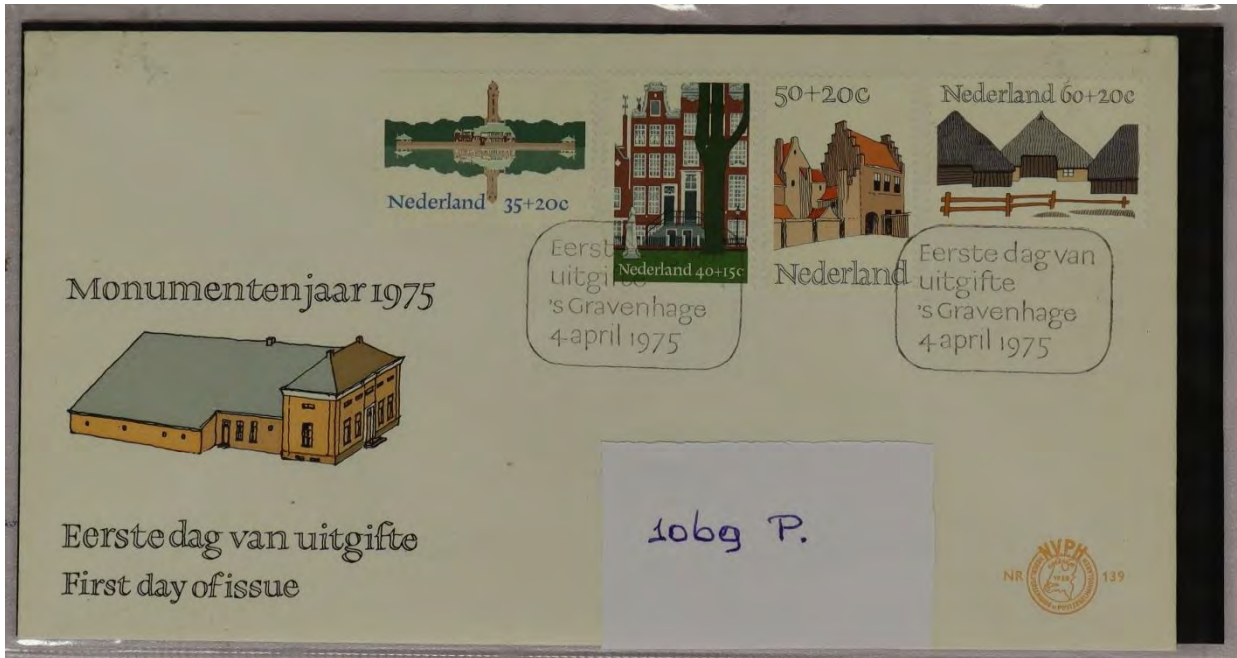 Nederland 35+20c
Nederland 40+15c
50+20c
Nederland
Nederland 60+20c
Eerst
uitgifte
's Gravenhage
4 april 1975
Eerste dag van
uitgifte
's Gravenhage
4 april 1975
Monumentenjaar 1975
Eerste dag van uitgifte
First day of issue
106g P.
NVPH
NR 139